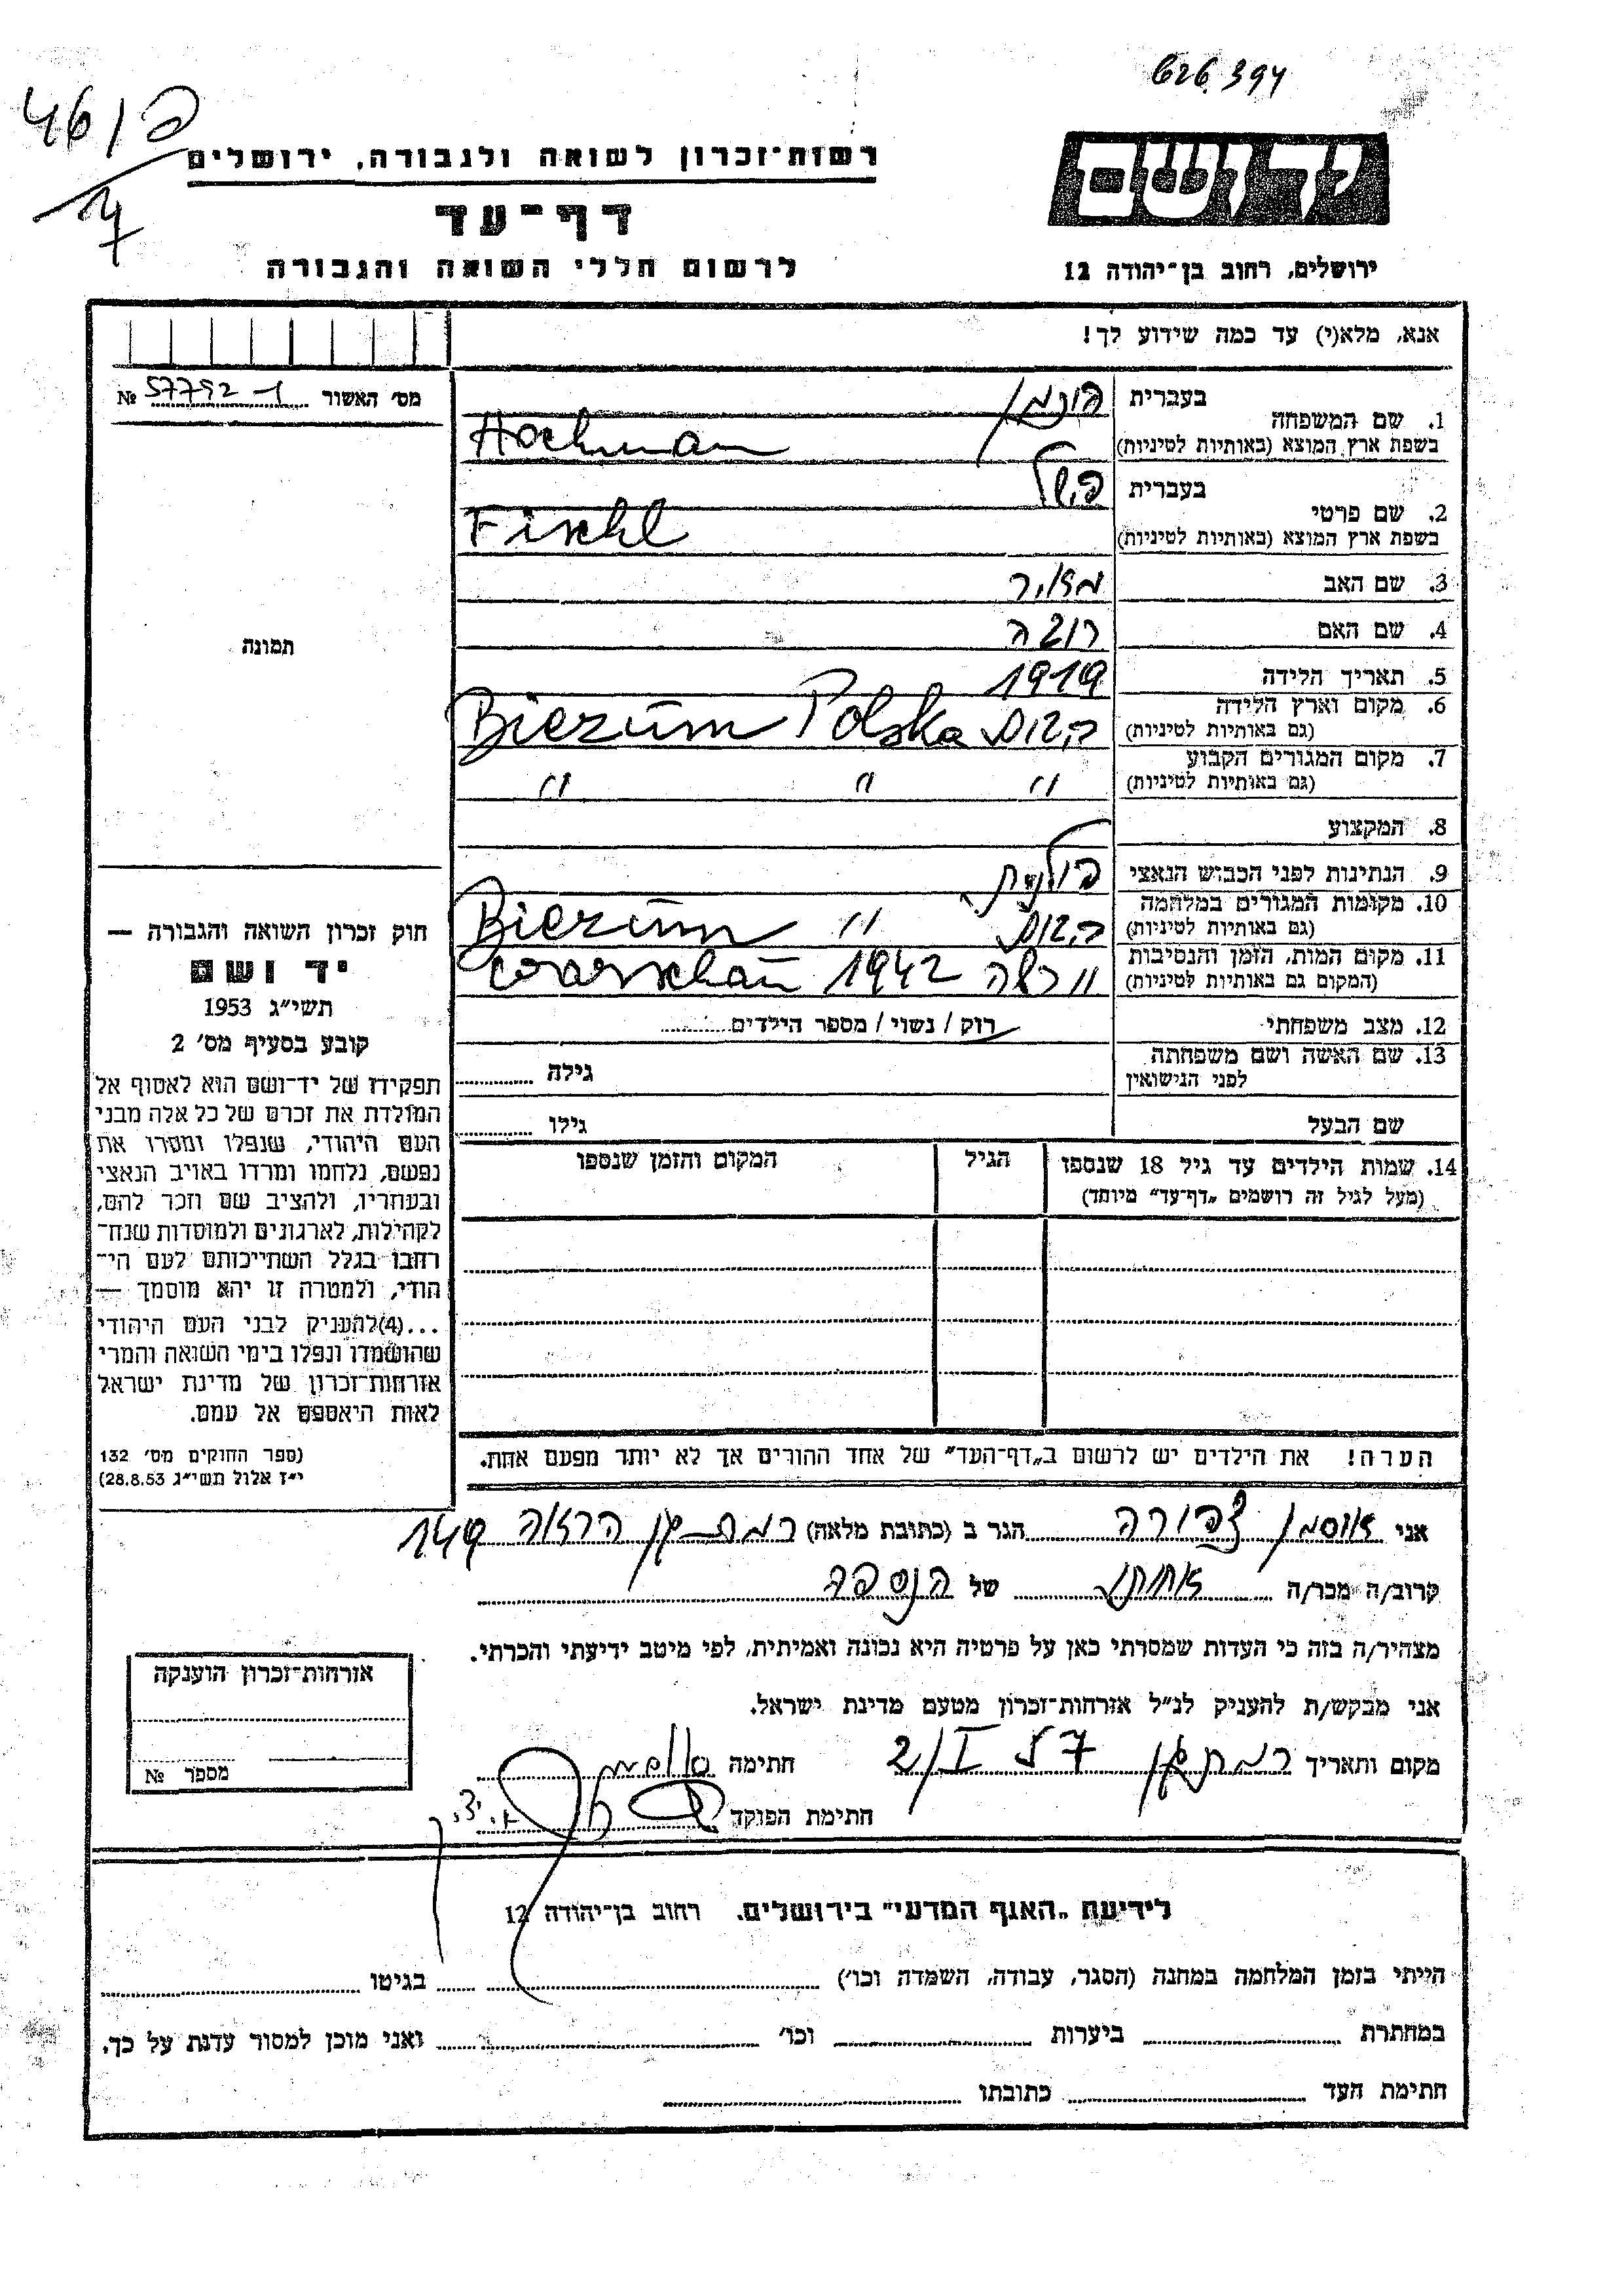 626394
46 / פ
רשות־זכרון לשואה ולגבורה, ירושלים
דף־עד
לרשום חללי השואה והגבורה
יד ושם
ירושלים, רחוב בן־יהודה 12
אנא, מלא(י) עד כמה שידוע לך!
מס׳ האשור № 57792
1. שם המשפחה
בעברית הוכמן
בשפת ארץ המוצא (באותיות לטיניות) Hochman
2. שם פרטי
בעברית פישל
בשפת ארץ המוצא (באותיות לטיניות) Fischl
3. שם האב מאיר
4. שם האם
5. תאריך הלידה 1919
6. מקום וארץ הלידה
(גם באותיות לטיניות) Biezum Polska
7. מקום המגורים הקבוע
(גם באותיות לטיניות) " " "
8. המקצוע
9. הנתינות לפני הכבוש הנאצי פולנית
10. מקומות המגורים במלחמה
(גם באותיות לטיניות) " Biezum
11. מקום המות, הזמן והנסיבות
(המקום גם באותיות לטיניות) וורשה 1942 Warschau
12. מצב משפחתי רוק / נשוי / מספר הילדים
13. שם האשה ושם משפחתה
לפני הנישואין
גילה
שם הבעל גילו
14. שמות הילדים עד גיל 18 שנספו
(מעל לגיל זה רושמים „דף־עד" מיוחד)
הגיל
המקום והזמן שנספו
הערה! את הילדים יש לרשום ב„דף־העד" של אחד ההורים אך לא יותר מפעם אחת.
תמונה
חוק זכרון השואה והגבורה —
יד ושם
תשי״ג 1953
קובע בסעיף מס׳ 2
תפקידו של יד־ושם הוא לאסוף אל
המולדת את זכרם של כל אלה מבני
העם היהודי, שנפלו ומסרו את
נפשם, נלחמו ומרדו באויב הנאצי
ובעוזריו, ולהציב שם וזכר להם,
לקהילות, לארגונים ולמוסדות שנח־
רחבו בגלל השתייכותם לעם הי־
הודי, ולמטרה זו יהא מוסמך —
...(4)להעניק לבני העם היהודי
שהושמדו ונפלו בימי השואה והמרי
אזרחות־זכרון של מדינת ישראל
לאות היאספם אל עמם.
(ספר החוקים מס׳ 132
י״ז אלול תשי״ג 28.8.53)
אני אוסמן צפורה הגר ב (כתובת מלאה) רמת־גן הרואה 149
קרוב/ה מכר/ה אחות של הנספה
מצהיר/ה בזה כי העדות שמסרתי כאן על פרטיה היא נכונה ואמיתית, לפי מיטב ידיעתי והכרתי.
אני מבקש/ת להעניק לנ״ל אזרחות־זכרון מטעם מדינת ישראל.
מקום ותאריך רמת גן 2/I 57 חתימה
חתימת הפוקד
אזרחות־זכרון הוענקה
מספר №
לידיעת „האגף המדעי" בירושלים, רחוב בן־יהודה 12
הייתי בזמן המלחמה במחנה (הסגר, עבודה, השמדה וכו׳) בגיטו
במחתרת ביערות וכו׳ ואני מוכן למסור עדות על כך.
חתימת העד כתובתו